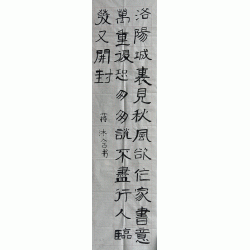 洛陽城裏見秋風欲作家書意
萬重復恐匆匆說不盡行人臨
發又開封